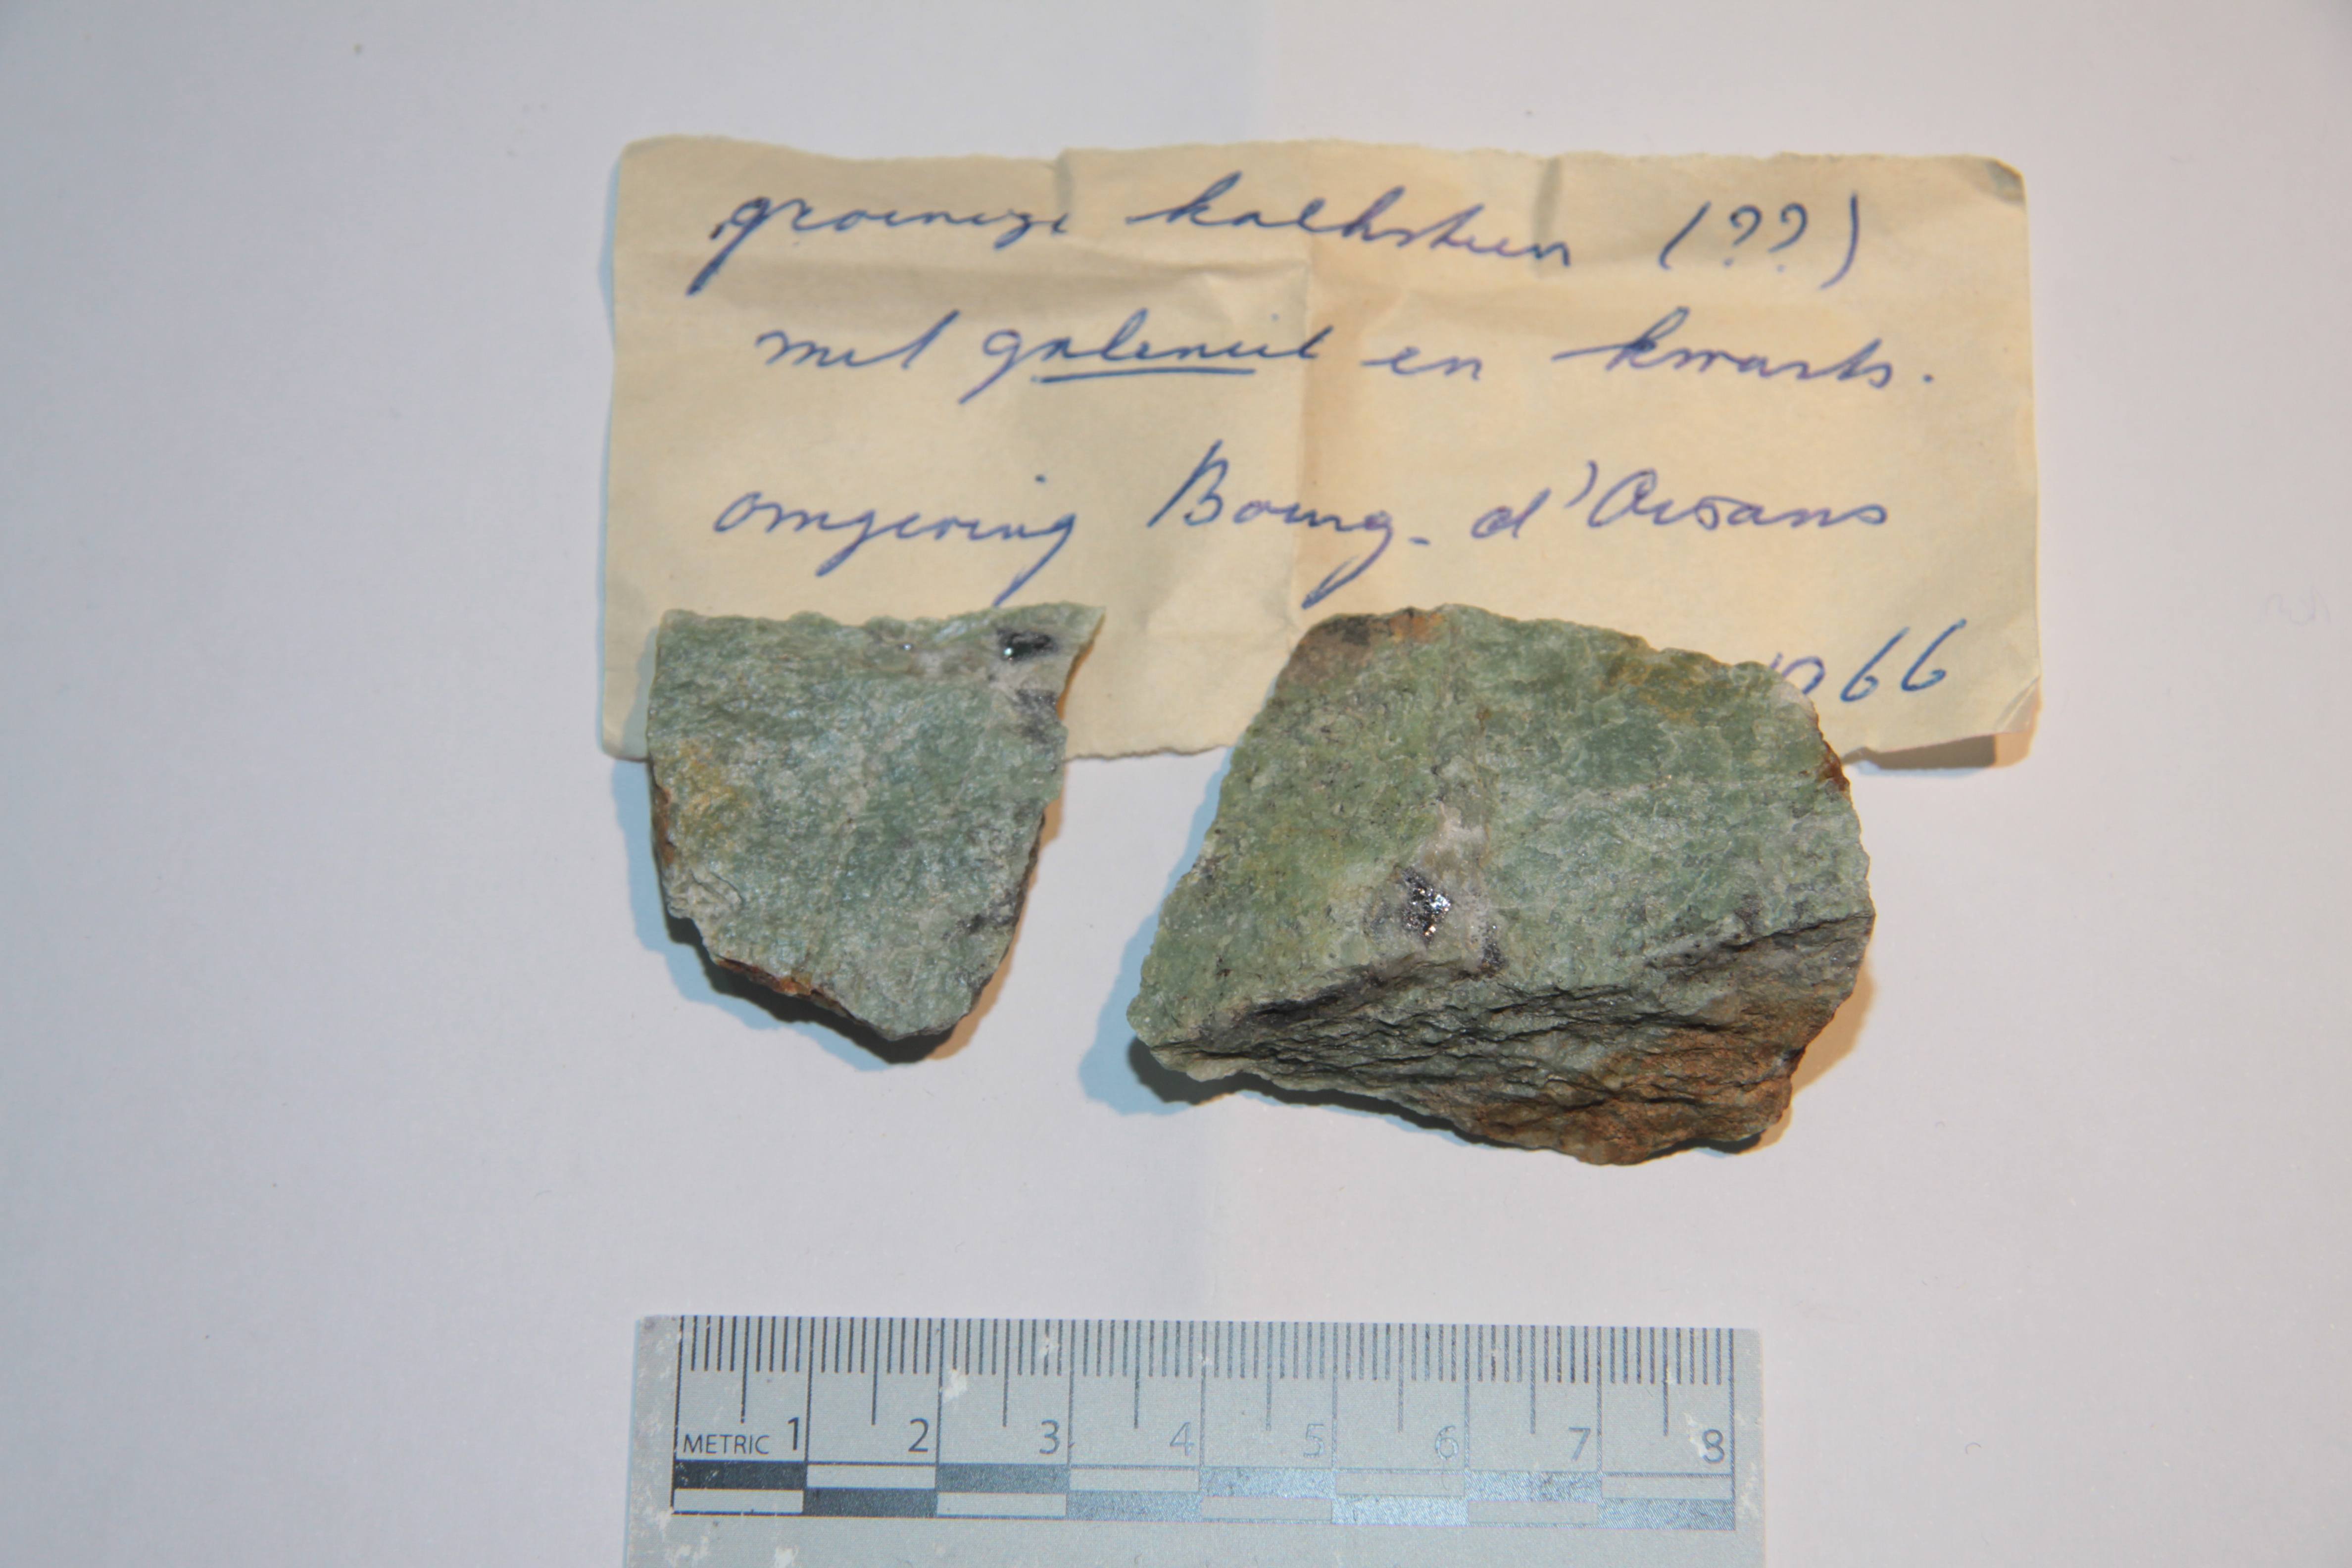 groenige kalksteen (??)
met galeniet en kwarts.
omgeving Bourg-d'Oisans
1966
METRIC 1 2 3 4 5 6 7 8